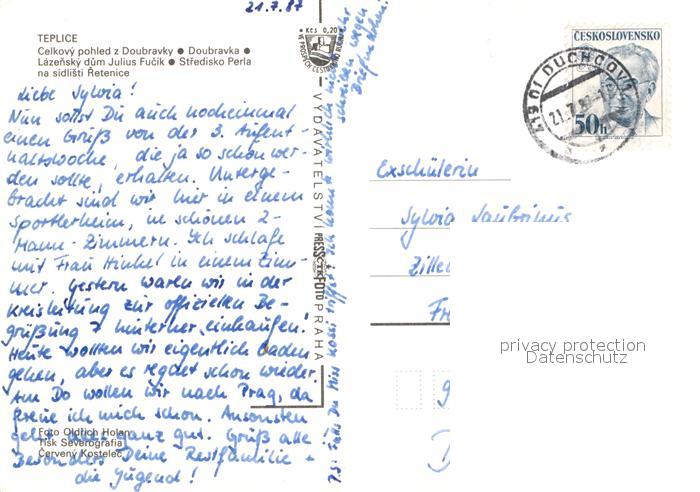 21.7.87
TEPLICE
Celkový pohled z Doubravky ● Doubravka ●
Lázeňský dům Julius Fučík ● Středisko Perla
na sídlišti Řetenice
Liebe Sylvia!
Nun sollst Du auch nocheinmal
einen Gruß von der 3. Aufent-
haltswoche, die ja so schön wer-
den sollte, erhalten. Unterge-
bracht sind wir hier in einem
Sportlerheim, in schönen 2-
Mann-Zimmern. Ich schlafe
mit Frau Hinkel in einem Zim-
mer. Gestern waren wir in der
Kreisleitung zur offiziellen Be-
grüßung & hinterher einkaufen.
Heute wollten wir eigentlich baden
gehen, aber es regnet schon wieder.
Am Do wollen wir nach Prag, da
freue ich mich schon. Ansonsten
geht's ganz gut. Grüß alle
besonders Deine Restfamilie +
die Jugend!
Foto Oldřich Holan
Tisk Severografia
Červený Kostelec
P.S. Falls Du Miss Rossi triffst, ich konnte
schreiben wegen
Briefmarken!
Kčs 0,20
VYDAVATELSTVÍ PRESSFOTO PRAHA
ČESKOSLOVENSKO
50h
419 01 DUCHCOV 1
21.7.87
Exschülerin
Sylvia
Zille
Fr
privacy protection
Datenschutz